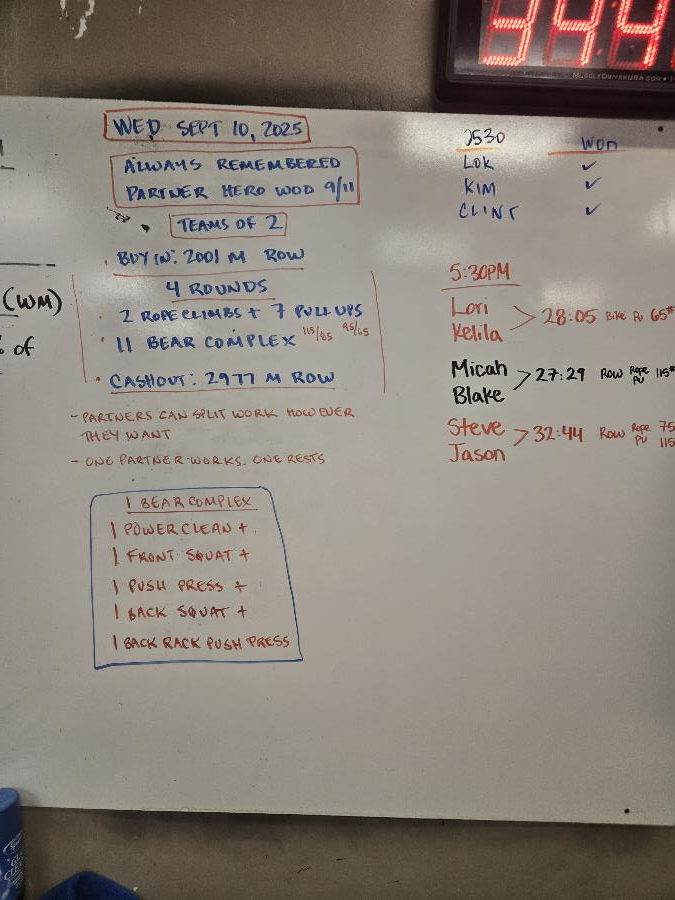 344
MUSCLEDRIVERUSA.COM
WED SEPT 10, 2025
ALWAYS REMEMBERED
PARTNER HERO WOD 9/11
TEAMS OF 2
BUY IN: 2001 M ROW
4 ROUNDS
2 ROPE CLIMBS + 7 PULL UPS
11 BEAR COMPLEX 115/85 95/65
CASHOUT: 2977 M ROW
- PARTNERS CAN SPLIT WORK HOWEVER
THEY WANT
- ONE PARTNER WORKS, ONE RESTS
1 BEAR COMPLEX
1 POWER CLEAN +
1 FRONT SQUAT +
1 PUSH PRESS +
1 BACK SQUAT +
1 BACK RACK PUSH PRESS
(WM)
of
0530 WOD
LOK ✓
KIM ✓
CLINT ✓
5:30PM
Lori
Kelila > 28:05 Bike PU 65#
Micah
Blake > 27:29 Row Rope PU 115#
Steve
Jason > 32:44 Row Rope PU 75 115